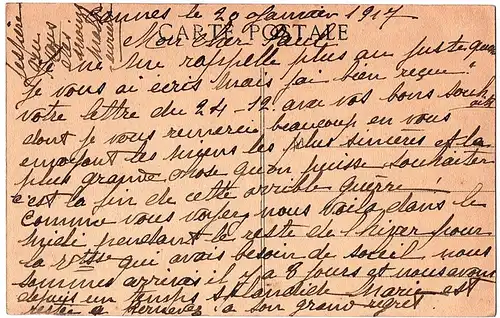 Cannes le 20 Janvier 1917
CARTE POSTALE
Mon cher
Je ne me rappelle plus au juste quand
Je vous ai écris mais j'ai bien reçue
votre lettre du 24-12 avec vos bons souhaits
dont je vous remercie beaucoup en vous
envoyant les miens les plus sincères et la
plus grande chose qu'on puisse souhaiter
c'est la fin de cette terrible guerre!
Comme vous voyez nous voilà dans le
midi pendant le reste de l'hiver pour
la qui avais besoin de soleil nous
sommes arrivés il y a 8 jours et nous avons
depuis un temps splendide Marie est
restée à à son grand regret